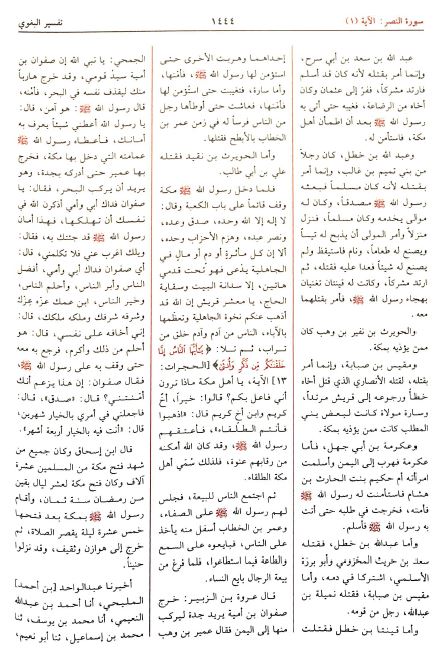 سورة النصر: الآية (١)
١٤٤٤
تفسير البغوي
عبد الله بن سعد بن أبي سرح،
وإنما أمر بقتله لأنه كان قد أسلم
فارتد مشركًا، ففرّ إلى عثمان وكان
أخاه من الرضاعة، فغيبه حتى أتى به
رسول الله ﷺ بعد أن اطمأن أهل
مكة، فاستأمن له.
وعبد الله بن خطل، كان رجلاً
من بني تميم بن غالب، وإنما أمر
بقتله لأنه كان مسلمًا فبعثه
رسول الله ﷺ مصدقًا، وكان له
مولى يخدمه وكان مسلمًا، فنزل
منزلاً وأمر المولى أن يذبح له تيسًا
ويصنع له طعامًا، ونام فاستيقظ ولم
يصنع له شيئًا فعدا عليه فقتله، ثم
ارتد مشركًا، وكانت له قينتان تغنيان
بهجاء رسول الله ﷺ، فأمر بقتلهما
معه.
والحويرث بن نقير بن وهب كان
ممن يؤذيه بمكة.
ومقيس بن صبابة، وإنما أمر
بقتله، لقتله الأنصاري الذي قتل أخاه
خطأً ورجوعه إلى قريش مرتدًا.
وسارة مولاة كانت لبعض بني
المطلب كانت ممن يؤذيه بمكة.
وعكرمة بن أبي جهل، فأما
عكرمة فهرب إلى اليمن وأسلمت
امرأته أم حكيم بنت الحارث بن
هشام فاستأمنت له رسول الله ﷺ
فأمنه، فخرجت في طلبه حتى أتت
به رسول الله ﷺ فأسلم.
وأما عبد الله بن خطل، فقتله
سعد بن حريث المخزومي وأبو برزة
الأسلمي، اشتركا في دمه، وأما
مقيس بن صبابة، فقتله نميلة بن
عبد الله، رجل من قومه.
وأما قينتا بن خطل فقتلت
إحداهما وهربت الأخرى حتى
استؤمن لها رسول الله ﷺ، فأمّنها،
وأما سارة، فتغيبت حتى استؤمن لها
فأمنها، فعاشت حتى أوطأها رجل
من الناس فرسًا له في زمن عمر بن
الخطاب بالأبطح فقتلها.
وأما الحويرث بن نقيد فقتله
علي بن أبي طالب.
فلما دخل رسول الله ﷺ مكة
وقف قائمًا على باب الكعبة وقال:
لا إله إلا الله وحده، صدق وعده،
ونصر عبده، وهزم الأحزاب وحده،
ألا إن كل مأثرة أو دم أو مال في
الجاهلية يدعى فهو تحت قدمي
هاتين، إلا سدانة البيت وسقاية
الحاج، يا معشر قريش إن الله قد
أذهب عنكم نخوة الجاهلية وتعظمها
بالآباء، الناس من آدم وآدم خلق من
تراب، ثم تلا: ﴿يَٰٓأَيُّهَا ٱلنَّاسُ إِنَّا
خَلَقۡنَٰكُم مِّن ذَكَرٖ وَأُنثَىٰ﴾ [الحجرات:
١٣] الآية، يا أهل مكة ماذا ترون
أني فاعل بكم؟ قالوا: خيرًا، أخ
كريم وابن أخ كريم قال: «اذهبوا
فأنتم الطلقاء»، فأعتقهم
رسول الله ﷺ، وقد كان الله أمكنه
من رقابهم عنوة، فلذلك سُمّي أهل
مكة الطلقاء.
ثم اجتمع الناس للبيعة، فجلس
لهم رسول الله ﷺ على الصفاء،
وعمر بن الخطاب أسفل منه يأخذ
على الناس، فبايعوه على السمع
والطاعة فيما استطاعوا، فلما فرغ من
بيعة الرجال بايع النساء.
قال عروة بن الزبير: خرج
صفوان بن أمية يريد جدة ليركب
منها إلى اليمن فقال عمير بن وهب
الجمحي: يا نبي الله إن صفوان بن
أمية سيد قومي، وقد خرج هاربًا
منك ليقذف نفسه في البحر، فأمّنه،
قال رسول الله ﷺ: هو آمن، قال:
يا رسول الله أعطني شيئًا يعرف به
أمانك، فأعطاه رسول الله ﷺ
عمامته التي دخل بها مكة، فخرج
بها عمير حتى أدركه بجدة، وهو
يريد أن يركب البحر، فقال: يا
صفوان فداك أبي وأمي أذكرك الله في
نفسك أن تهلكها، فهذا أمان
رسول الله ﷺ قد جئتك به، فقال:
ويلك اغرب عني فلا تكلمني، قال:
أي صفوان فداك أبي وأمي، أفضل
الناس وأبر الناس، وأحلم الناس،
وخير الناس، ابن عمك عزّه عزّك
وشرفه شرفك وملكه ملكك، قال:
إني أخافه على نفسي، قال: هو
أحلم من ذلك وأكرم، فرجع به معه
حتى وقف به على رسول الله ﷺ،
فقال صفوان: إن هذا يزعم أنك
أمّنتني؟ قال: «صدق»، قال:
فاجعلني في أمري بالخيار شهرين،
قال: «أنت فيه بالخيار أربعة أشهر».
قال ابن إسحاق وكان جميع من
شهد فتح مكة من المسلمين عشرة
آلاف وكان فتح مكة لعشر ليال بقين
من رمضان سنة ثمان، وأقام
رسول الله ﷺ بمكة بعد فتحها
خمس عشرة ليلة يقصر الصلاة، ثم
خرج إلى هوازن وثقيف، وقد نزلوا
حنينًا.
أخبرنا عبدالواحد [بن أحمد]
المليحي، أنا أحمد بن عبدالله
النعيمي، أنا محمد بن يوسف، ثنا
محمد بن إسماعيل، ثنا أبو نعيم،